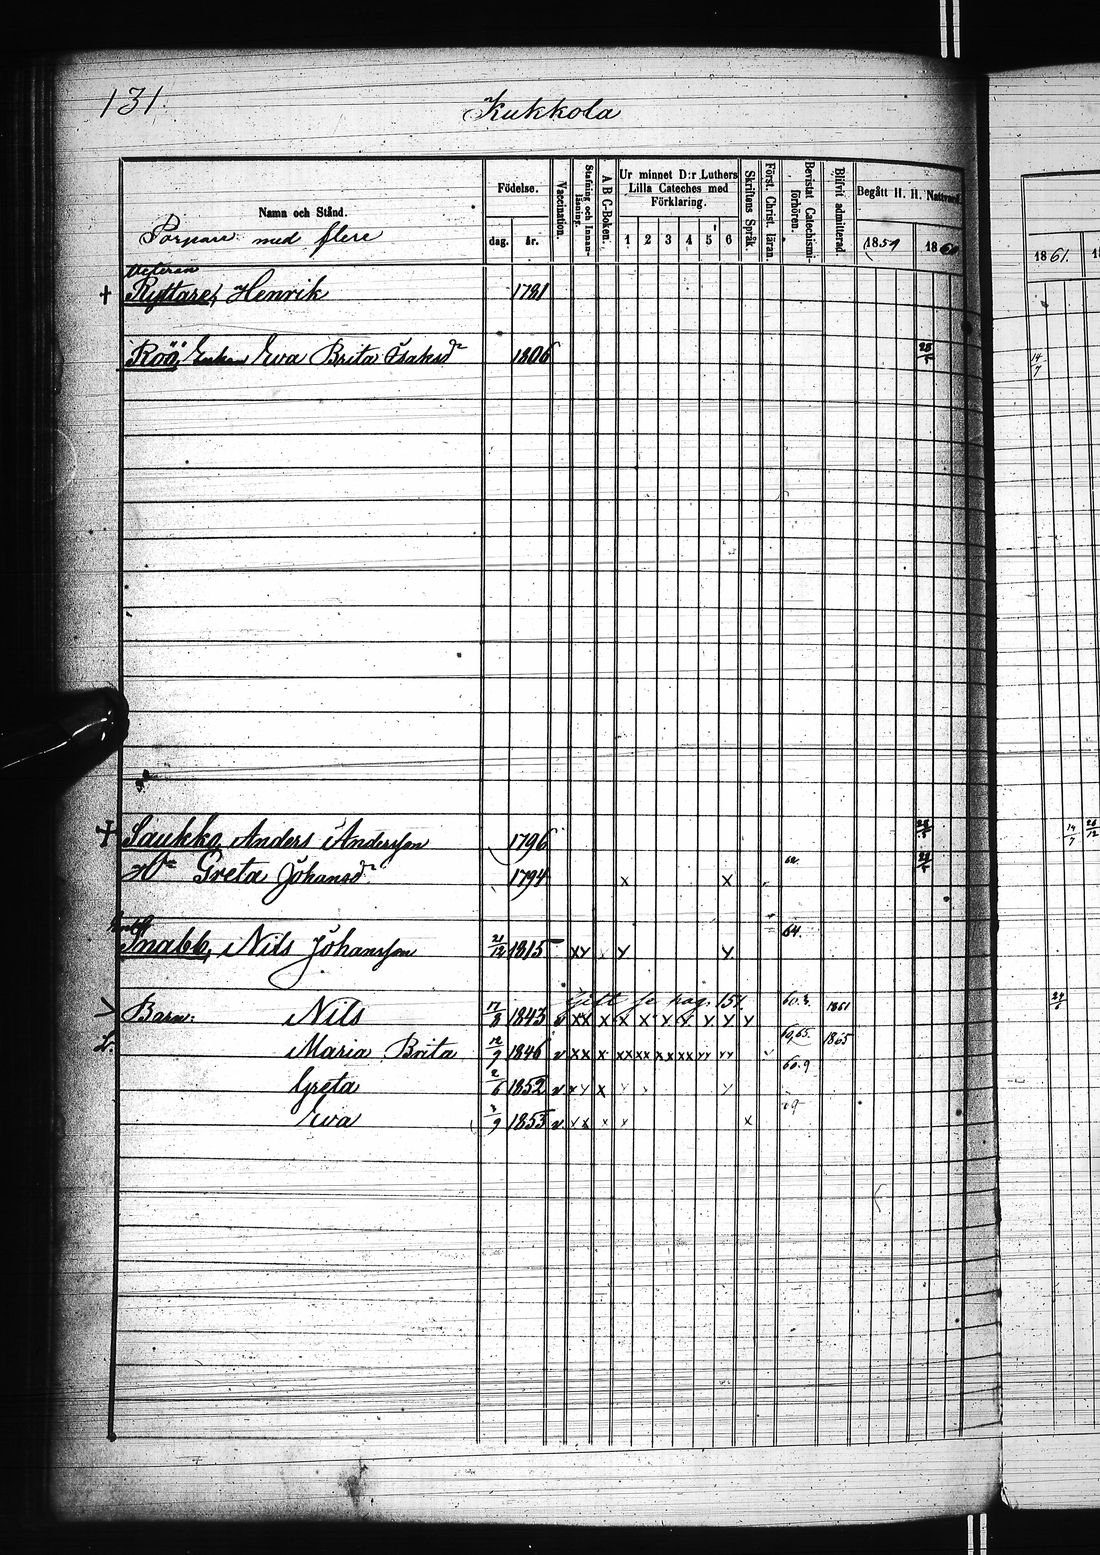 131.
Kukkola
Namn och Stånd.
Födelse.
dag. år.
Vaccination.
Stafning och Innanläsning.
A B C-Boken.
Ur minnet D:r Luthers
Lilla Cateches med
Förklaring.
1 2 3 4 5 6
Skriftens Språk.
Först. Christ. läran.
Bevistat Catechismiförhören.
Blifvit admitterad.
Begått H. H. Nattvard.
1859 1860
1861.
med flere
Veteran
† Ryttare, Henrik 1781
Röö, Enkan Ewa Brita Isaksdr 1806 14/7
† Saukko, Anders Andersson 1796 14/7 26/12
Hu Greta Johansdr 1794 x x 62.
Snabb, Nils Johansson 21/12 1815 x y y y 64.
Gift se pag. 151
Barn: Nils 17/8 1843 v x x x x x y y y y y 60.3. 1861 24/6
Maria Brita 12/9 1846 v x x x xx xx xx xx yy yy 60,65. 1865
Greta 2/6 1852 v x y x y y 60.9
Ewa 3/9 1855 v y x x y x 69